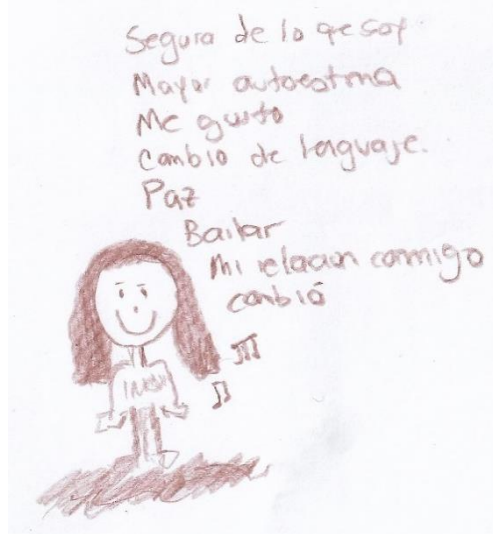 Segura de lo que soy
Mayor autoestima
Me gusto
Cambio de lenguaje.
Paz
Bailar
Mi relacion conmigo
cambió